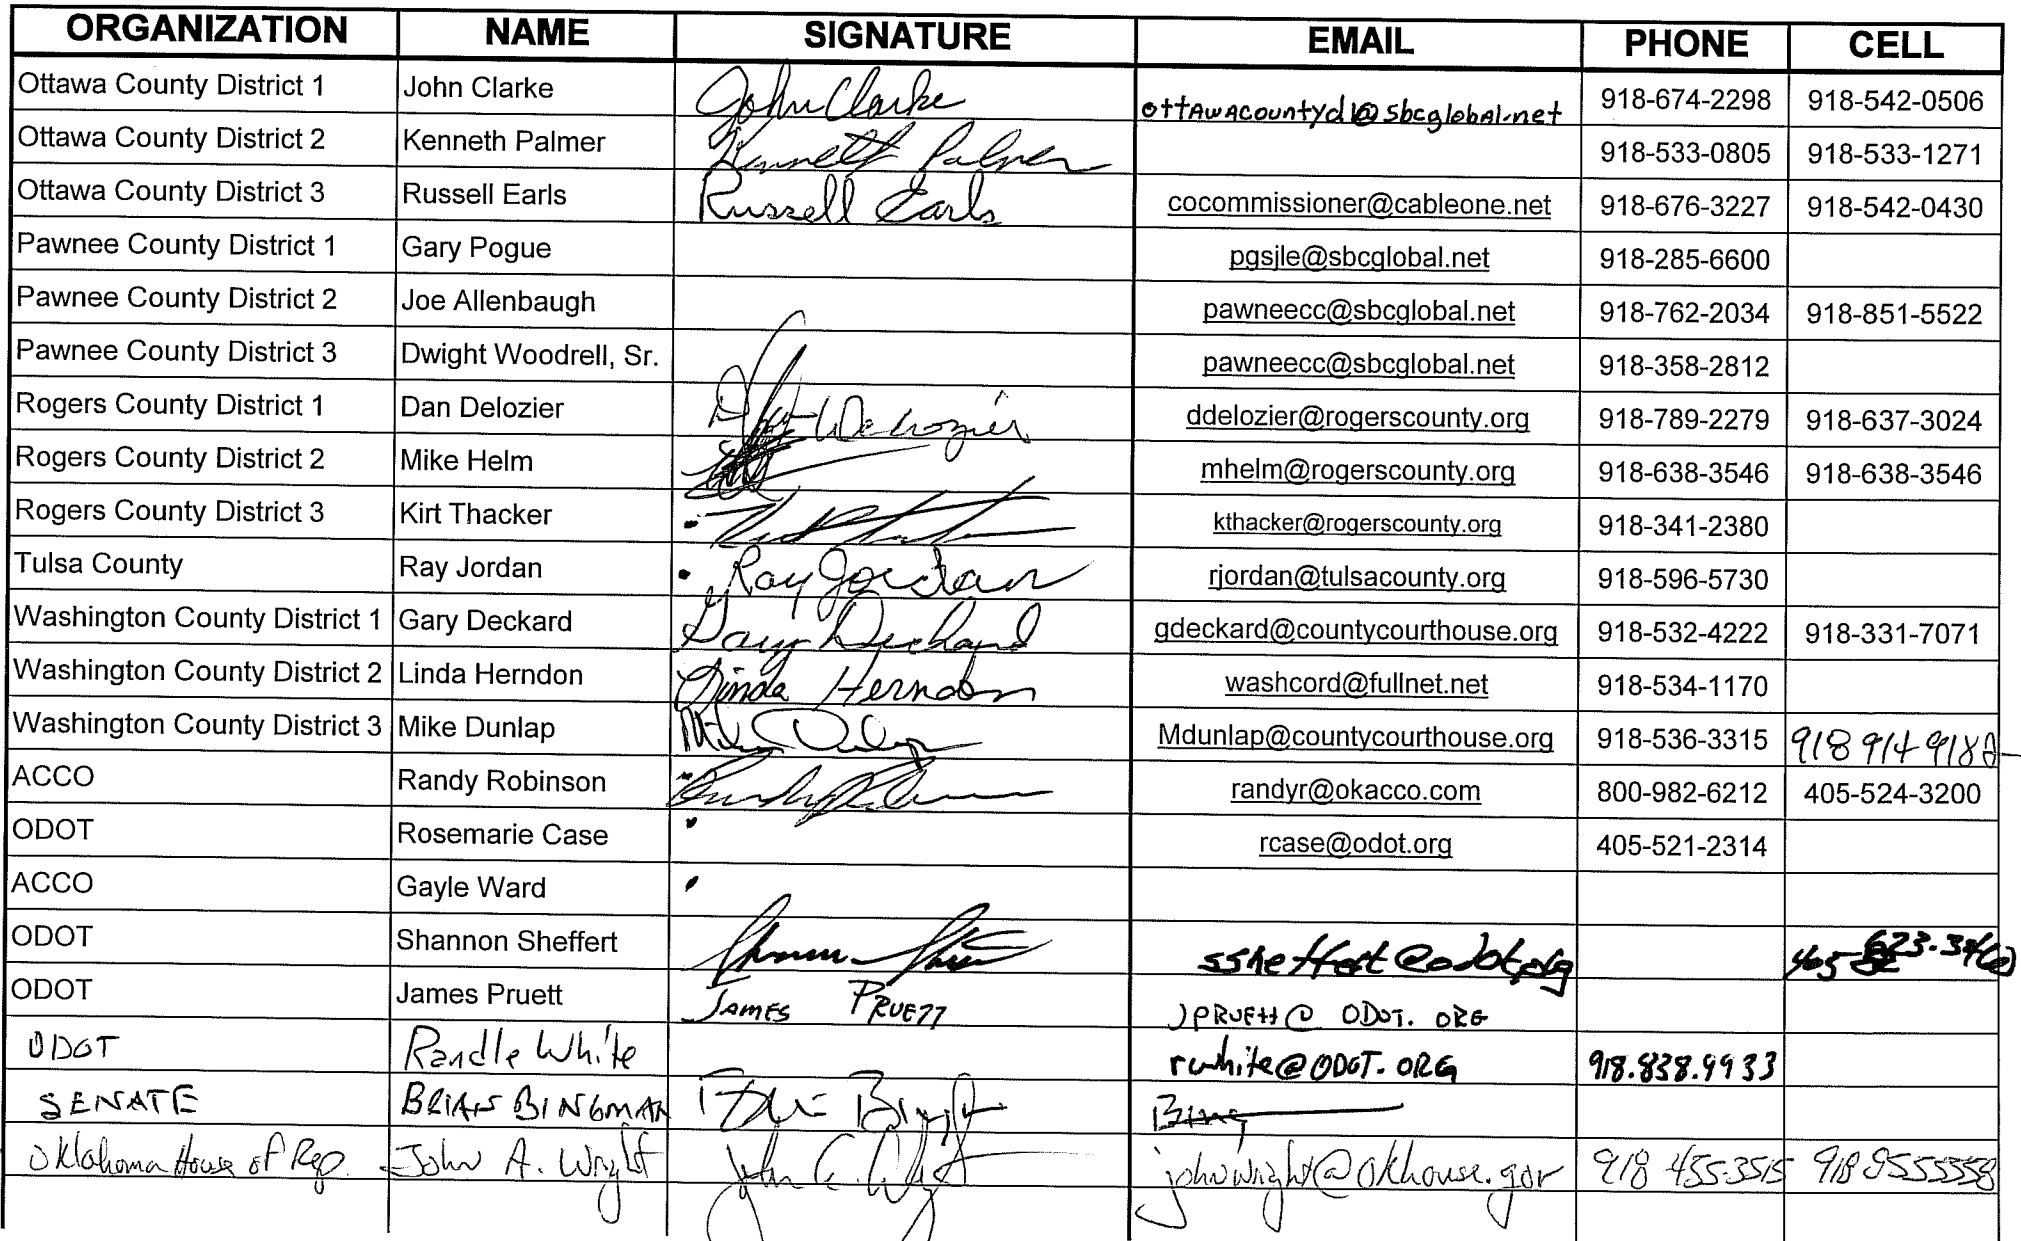 ORGANIZATION NAME SIGNATURE EMAIL PHONE CELL
Ottawa County District 1 John Clarke John Clarke ottawacountyd1@sbcglobal.net 918-674-2298 918-542-0506
Ottawa County District 2 Kenneth Palmer Kenneth Palmer 918-533-0805 918-533-1271
Ottawa County District 3 Russell Earls Russell Earls cocommissioner@cableone.net 918-676-3227 918-542-0430
Pawnee County District 1 Gary Pogue pgsjle@sbcglobal.net 918-285-6600
Pawnee County District 2 Joe Allenbaugh pawneecc@sbcglobal.net 918-762-2034 918-851-5522
Pawnee County District 3 Dwight Woodrell, Sr. pawneecc@sbcglobal.net 918-358-2812
Rogers County District 1 Dan Delozier ddelozier@rogerscounty.org 918-789-2279 918-637-3024
Rogers County District 2 Mike Helm mhelm@rogerscounty.org 918-638-3546 918-638-3546
Rogers County District 3 Kirt Thacker kthacker@rogerscounty.org 918-341-2380
Tulsa County Ray Jordan Ray Jordan rjordan@tulsacounty.org 918-596-5730
Washington County District 1 Gary Deckard Gary Deckard gdeckard@countycourthouse.org 918-532-4222 918-331-7071
Washington County District 2 Linda Herndon Linda Herndon washcord@fullnet.net 918-534-1170
Washington County District 3 Mike Dunlap Mike Dunlap Mdunlap@countycourthouse.org 918-536-3315 918 914 9182
ACCO Randy Robinson randyr@okacco.com 800-982-6212 405-524-3200
ODOT Rosemarie Case rcase@odot.org 405-521-2314
ACCO Gayle Ward
ODOT Shannon Sheffert ssheffert@odot.org
ODOT James Pruett JAMES PRUETT JPRUETT@ODOT.ORG
ODOT Randle White rwhite@ODOT.ORG 918.838.9933
SENATE BRIAN BINGMAN Bing
Oklahoma House of Rep. John A. Wright John A. Wright johnwright@okhouse.gov 918 455-3515